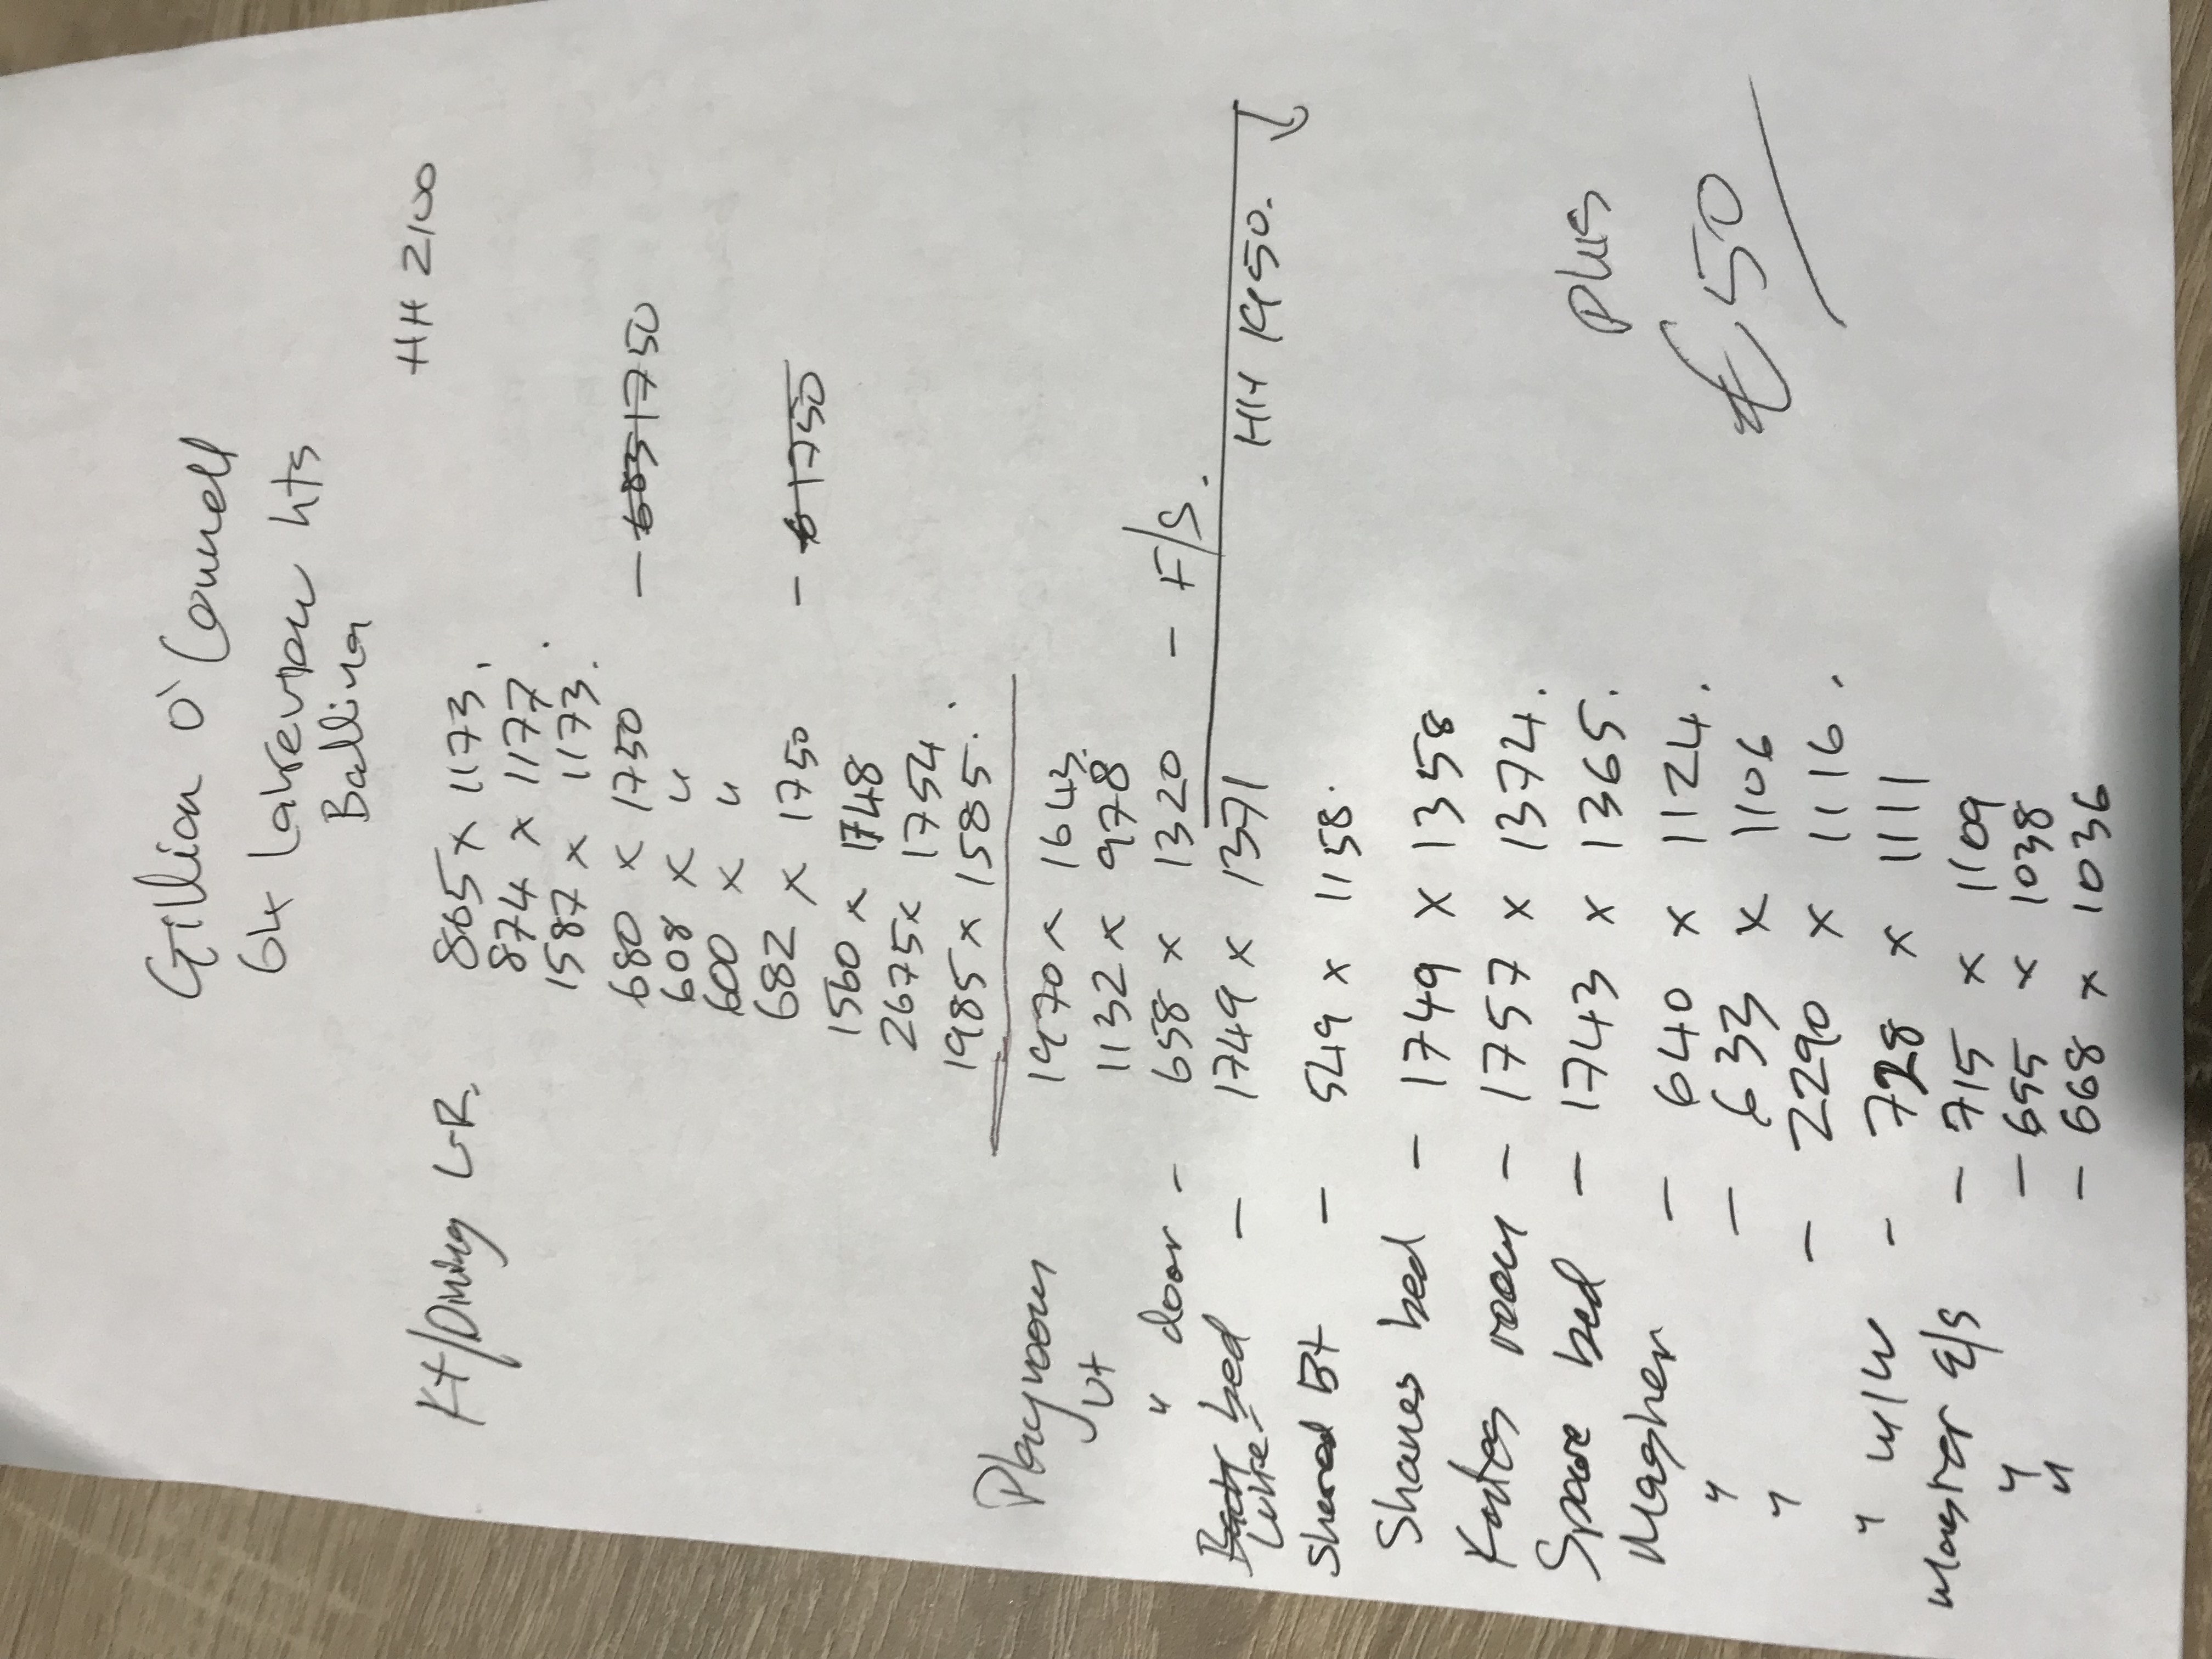 Gillian O'Connell
64 Lakeview hts
Ballina
HH 2100
Kt/Dining LR. 865 x 1173.
874 x 1177.
1587 x 1173.
680 x 1750 - 683 1750
608 x "
600 x "
682 x 1750 - 6 1750
1560 x 1748
2675 x 1754
1985 x 1585.
Playroom 1970 x 1643.
Ut 1132 x 978
" door - 658 x 1320 - F/S.
Luke bed - 1749 x 1371 HH 1950.
Shared Bt - 549 x 1158.
Shanes bed - 1749 x 1358
room - 1757 x 1374.
Plus
Spare bed - 1743 x 1365.
€50
Masher - 640 x 1124.
" - 633 x 1106
" - 2290 x 1116.
" W/W - 728 x 1111
Master E/S - 715 x 1109
" - 655 x 1038
" - 668 x 1036